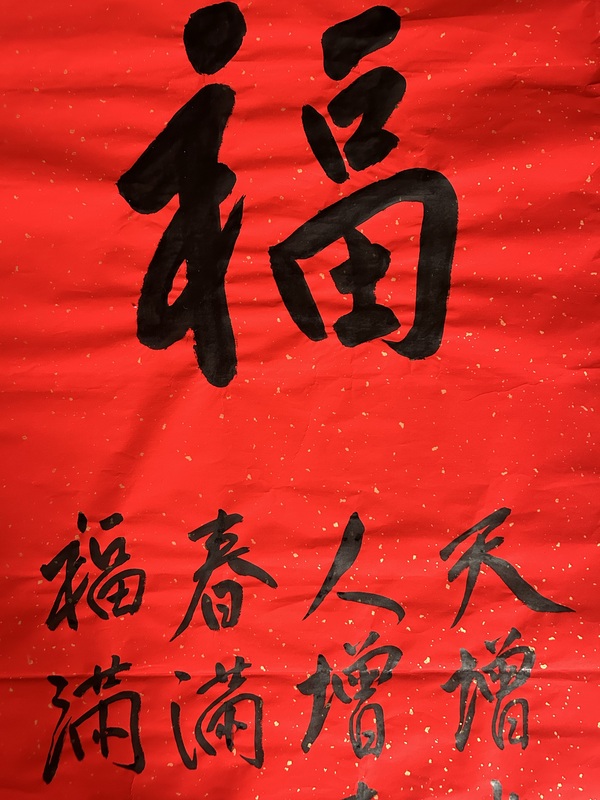 福
天增
人增
春滿
福滿